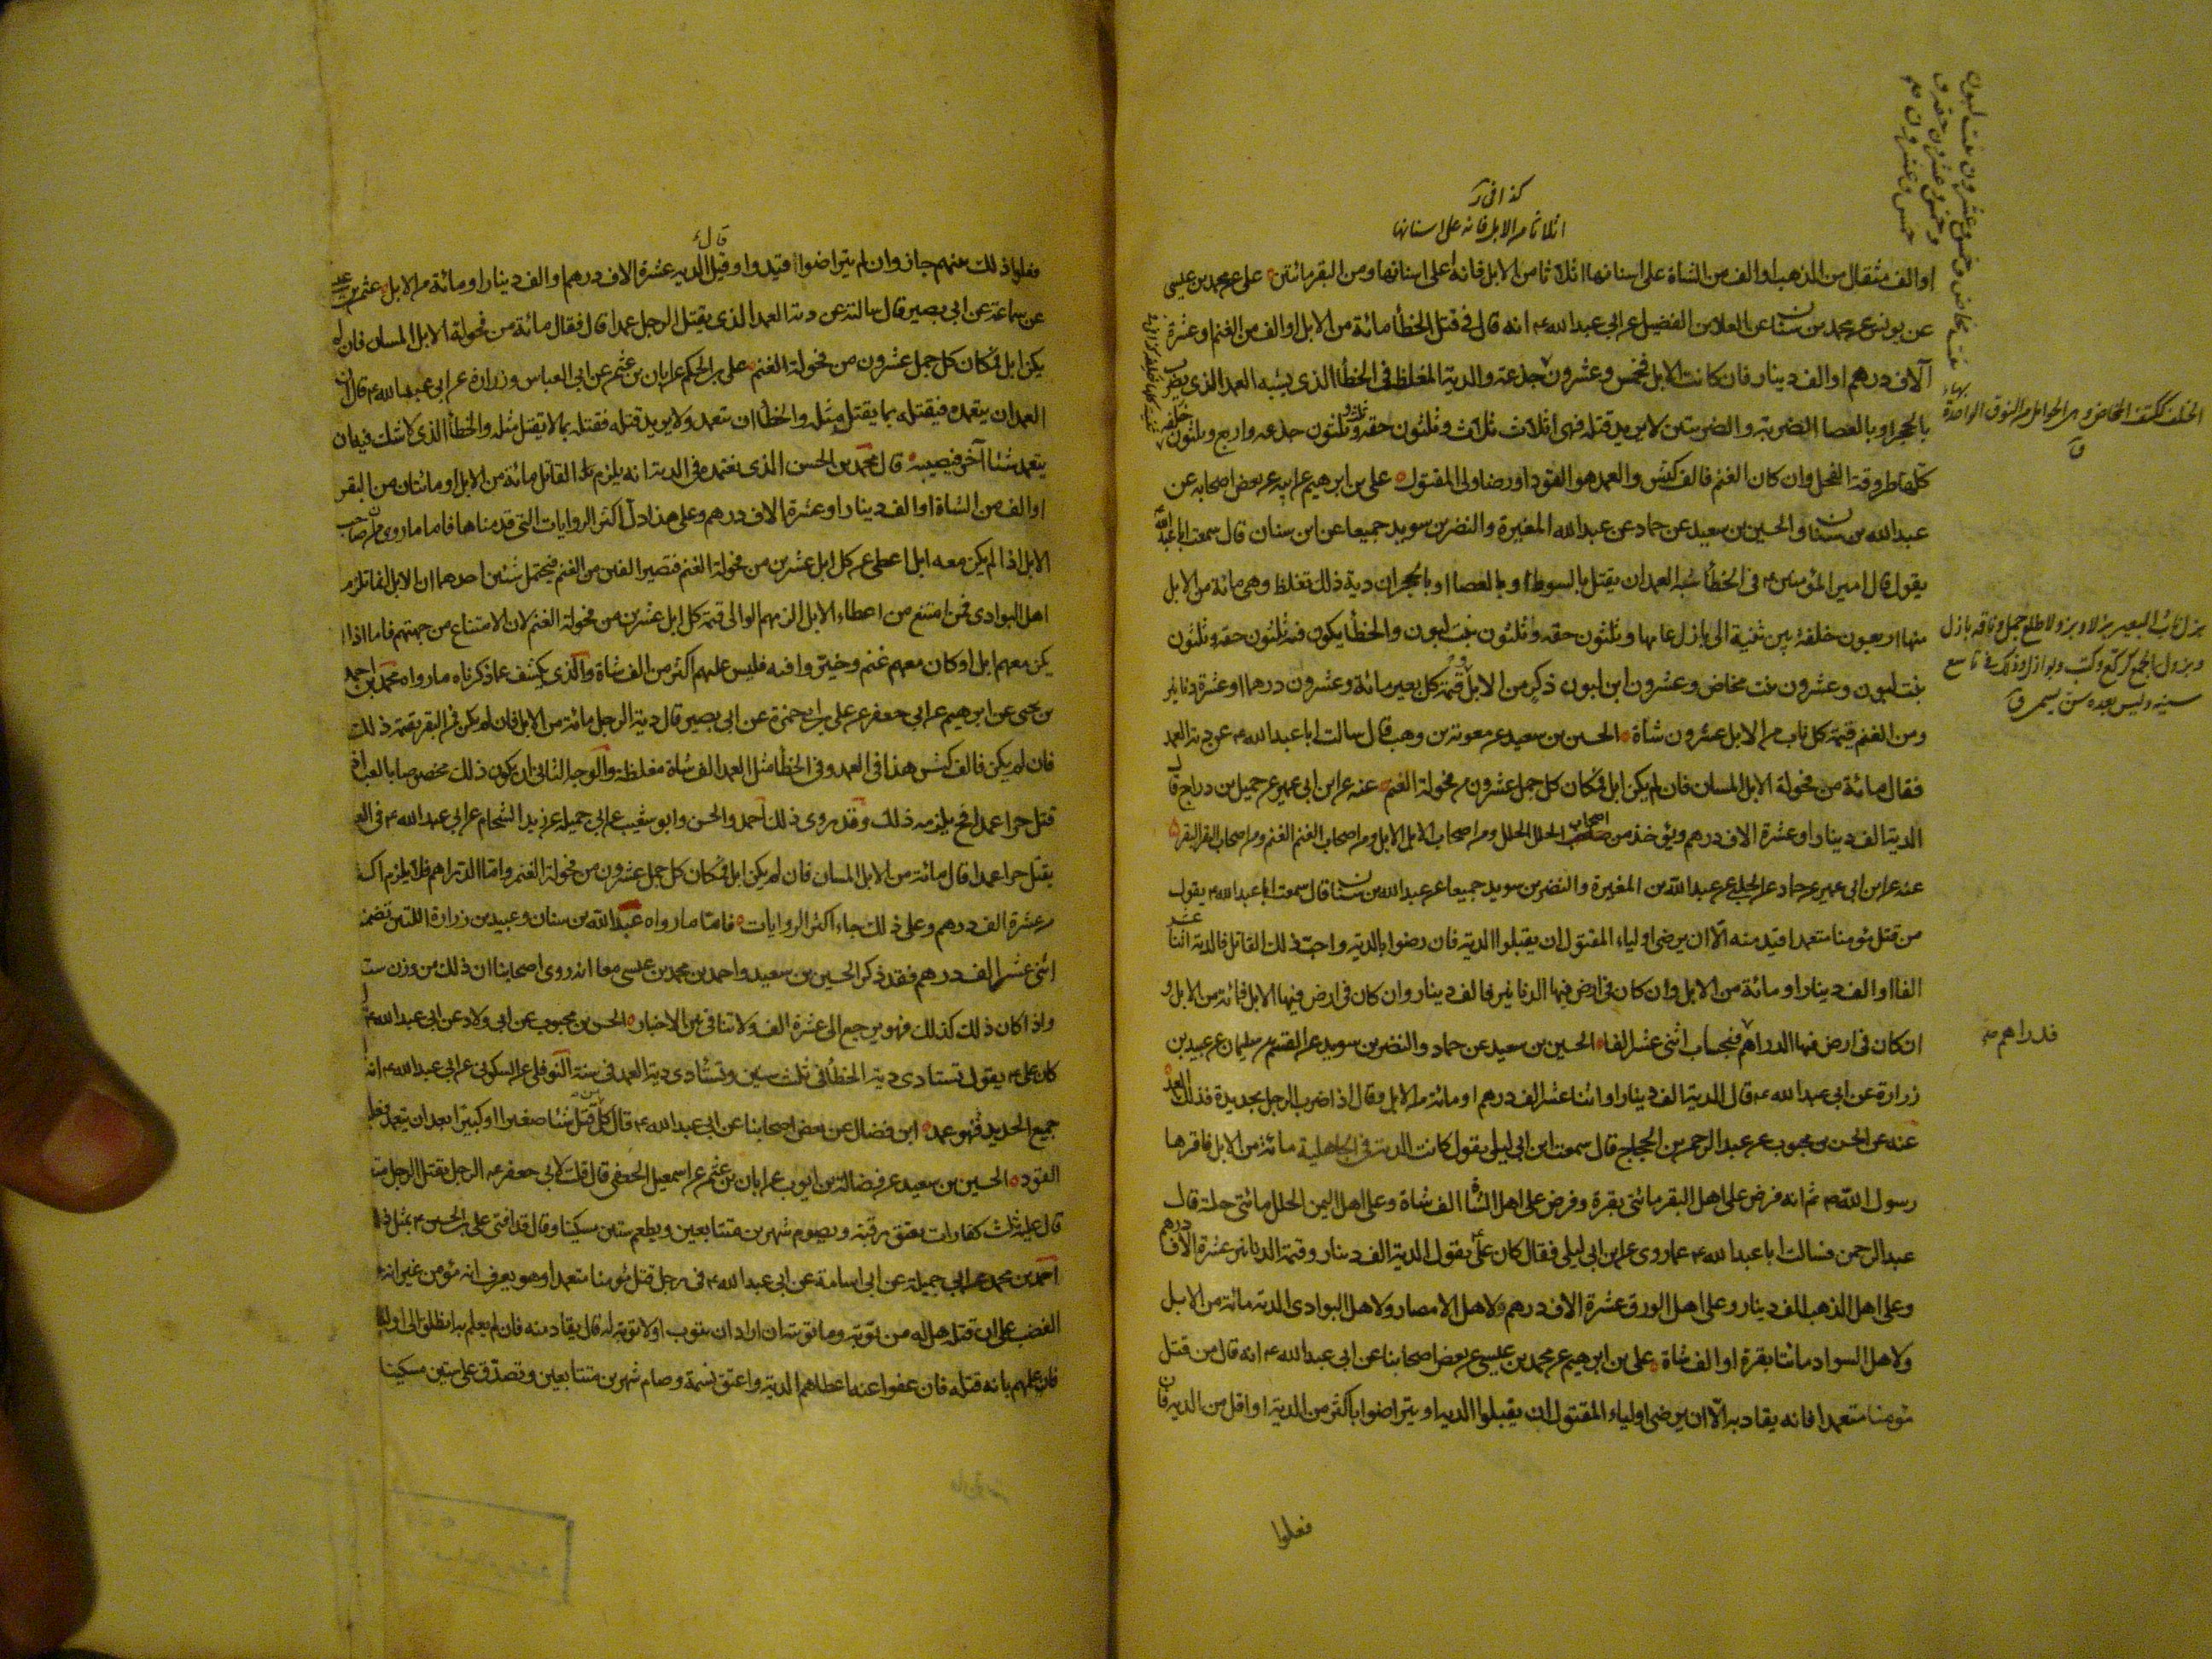 كذا فى
اثلاثا من الابل فانه على اسنانها
او الف مثقال من الذهب او الف من الشاة على اسنانها اثلاثا من الابل فانه على اسنانها ومن البقر مائتين على عن محمد بن عيسى
عن يونس عن محمد بن سنان عن العلا بن الفضيل عن ابى عبد الله ع انه قال فى قتل الخطأ مائة من الابل او الف من الغنم او عشرة
آلاف درهم او الف دينار فان كانت الابل فخمس وعشرون جذعة والدية المغلظة فى الخطأ الذى يشبه العمد الذى يضرب
بالحجر او بالعصا الضربة والضربتين لا يريد قتله فهى اثلاث ثلاث وثلثون حقة وثلثون جذعه واربع وثلثون خلفة
كلها طروقة الفحل وان كان الغنم فالف كبش والعمد هو القود او رضا ولى المقتول على بن ابرهيم عن ابيه عن بعض اصحابه عن
عبد الله بن سنان والحسين بن سعيد عن حماد عن عبد الله المغيرة والنضر بن سويد جميعا عن ابن سنان قال سمعت ابا عبد الله
يقول قال امير المؤمنين ع فى الخطأ شبه العمد ان يقتل بالسوط او بالعصا او بالحجر ان دية ذلك تغلظ وهى مائة من الابل
منها اربعون خلفة بين ثنية الى بازل عامها وثلثون حقه وثلثون بنت لبون والخطأ يكون فيه ثلثون حقه وثلثون
بنت لبون وعشرون بنت مخاض وعشرون ابن لبون ذكر من الابل وقيمة كل بعير مائة وعشرون درهما او عشرة دنانير
ومن الغنم قيمة كل ناب من الابل عشرون شاة الحسين بن سعيد عن معوية بن وهب قال سالت ابا عبد الله ع عن دية العمد
فقال مائة من فحولة الابل المسان فان لم يكن ابل فكان كل جمل عشرون من فحولة الغنم عنه عن ابن ابى عمير عن جميل بن دراج قال
الدية الف دينار او عشرة الاف درهم ويؤخذ من اصحاب الحلل الحلل ومن اصحاب الابل الابل ومن اصحاب الغنم الغنم ومن اصحاب البقر البقر
عنه عن ابن ابى عمير عن حماد عن الحلبى عن عبد الله بن المغيرة والنضر بن سويد جميعا عن عبد الله بن سنان قال سمعت ابا عبد الله ع يقول
من قتل مؤمنا متعمدا قيد منه الا ان يرضى اولياء المقتول ان يقبلوا الدية فان رضوا بالدية واحب ذلك القاتل فالدية اثنا عشر
الفا او الف دينار او مائة من الابل وان كان فى ارض فيها الدنانير فالف دينار وان كان فى ارض فيها الابل فمائة من الابل و
ان كان فى ارض فيها الدراهم فبحساب اثنى عشر الفا الحسين بن سعيد عن حماد والنضر بن سويد عن القسم بن سليمان عن عبيد بن
زرارة عن ابى عبد الله ع قال الدية الف دينار او اثنا عشر الف درهم او مائة من الابل وقال اذا ضرب الرجل بحديدة فذلك العمد
عنه عن الحسن بن محبوب عن عبد الرحمن بن الحجاج قال سمعت ابن ابى ليلى يقول كانت الدية فى الجاهلية مائة من الابل فاقرها
رسول الله ص ثم انه فرض على اهل البقر مائتى بقرة وفرض على اهل الشاة الف شاة وعلى اهل اليمن الحلل مائتى حلة قال
عبد الرحمن فسالت ابا عبد الله ع عما روى عن ابن ابى ليلى فقال كان على يقول الدية الف دينار وقيمة الدنانير عشرة الاف درهم
وعلى اهل الذهب الف دينار وعلى اهل الورق عشرة الاف درهم ولاهل الامصار ولاهل البوادى الدية مائة من الابل
ولاهل السواد مائتا بقرة او الف شاة على بن ابرهيم عن محمد بن عيسى عن بعض اصحابنا عن ابى عبد الله ع انه قال من قتل
مؤمنا متعمدا فانه يقاد به الا ان يرضى اولياء المقتول ان يقبلوا الدية او يتراضوا باكثر من الدية او اقل من الدية فان
فعلوا
الخلف ككتف المخاض وهى الحوامل من النوق الواحدة بهاء ق
بزل ناب البعير بزلا وبزولا طلع جمل وناقة بازل
وبزول الجمع كركع وكتب وبوازل وذلك فى تاسع
سنيه وليس بعده سن تسمى ق
فدراهم
فعلوا ذلك بينهم جاز وان لم يتراضوا قيدوا وقيل الدية عشرة الاف درهم او الف دينار او مائة من الابل عثمن بن عيسى
عن سماعة عن ابى بصير قال سالته عن دية العمد الذى يقتل الرجل عمدا قال فقال مائة من فحولة الابل المسان فان لم
يكن ابل فكان كل جمل عشرون من فحولة الغنم على بن الحكم عن ابان بن عثمن عن ابى العباس وزرارة عن ابى عبد الله ع قال ان
العمد ان يتعمده فيقتله بما يقتل مثله والخطأ ان يتعمد ولا يريد قتله فقتله بما لا يقتل مثله والخطأ الذى لا شك فيه ان
يتعمد شيئا آخر فيصيبه قال محمد بن الحسن الذى نعتمده فى الدية انه يلزم القاتل مائة من الابل او مائتان من البقر
او الف من الشاة او الف دينار او عشرة الاف درهم وعلى هذا دل اكثر الروايات التى قدمناها فاما ما روى من ان صاحب
الابل اذا لم يكن معه ابل اعطى عن كل ابل عشرين من فحولة الغنم فتصير الفين من الغنم فيحتمل شيئين احدهما ان الابل انما تلزم
اهل البوادى فمن امتنع من اعطاء الابل الزمهم الوالى قيمة كل ابل عشرين من فحولة الغنم لان الامتناع من جهتهم فاما اذا لم
يكن معهم ابل او كان معهم غنم وخيروا فيه فليس عليهم اكثر من الف شاة والذى يكشف عما ذكرناه ما رواه محمد بن احمد
بن يحيى عن ابرهيم عن ابى جعفر عن على بن ابى حمزة عن ابى بصير قال دية الرجل مائة من الابل فان لم يكن فمن البقر بقيمة ذلك
فان لم يكن فالف كبش هذا فى العمد وفى الخطأ مثل العمد الف شاة مغلظة والوجه الثانى ان يكون ذلك مخصوصا بالعبد اذا
قتل حرا عمدا فح يلزمه ذلك وقد روى ذلك احمد والحسن وابو شعيب عن ابى جميلة عن زيد الشحام عن ابى عبد الله ع فى العبد
يقتل حرا عمدا قال مائة من الابل المسان فان لم يكن ابل فكان كل جمل عشرون من فحولة الغنم واما الدراهم فلا يلزم اكثر
من عشرة الف درهم وعلى ذلك جاء اكثر الروايات فاما ما رواه عبد الله بن سنان وعبيد بن زرارة اللتين تضمنتا
اثنى عشر الف درهم فقد ذكر الحسين بن سعيد واحمد بن محمد بن عيسى معا انه روى اصحابنا ان ذلك من وزن ستة
واذا كان ذلك كذلك فهو يرجع الى عشرة الف ولا تنافى بين الاخبار الحسن بن محبوب عن ابى ولاد عن ابى عبد الله ع
كان على ع يقول تستادى دية الخطأ فى ثلث سنين وتستادى دية العمد فى سنة النوفلى عن السكونى عن ابى عبد الله ع انه
جميع الحديد فهو عمد ابن فضال عن بعض اصحابنا عن ابى عبد الله ع قال كل من قتل شيئا صغيرا او كبيرا بعد ان يتعمد فعليه
القود الحسين بن سعيد عن فضالة بن ايوب عن ابان بن عثمن عن اسمعيل الجعفى قال قلت لابى جعفر ع الرجل يقتل الرجل
قال عليه ثلث كفارات يعتق رقبة ويصوم شهرين متتابعين ويطعم ستين مسكينا وقال قد افتى على بن الحسين ع بمثل ذلك
احمد بن محمد عن ابى جميلة عن ابى اسامة عن ابى عبد الله ع فى رجل قتل مؤمنا متعمدا وهو يعرف انه مؤمن غير انه
الغضب على ان قتله هل له من توبة وما توبته ان اراد ان يتوب او لا توبة له قال يقاد منه فان لم يعلم به انطلق الى اوليائه
فاعلمهم بانه قتله فان عفوا عنه اعطاهم الدية واعتق نسمة وصام شهرين متتابعين وتصدق على ستين مسكينا